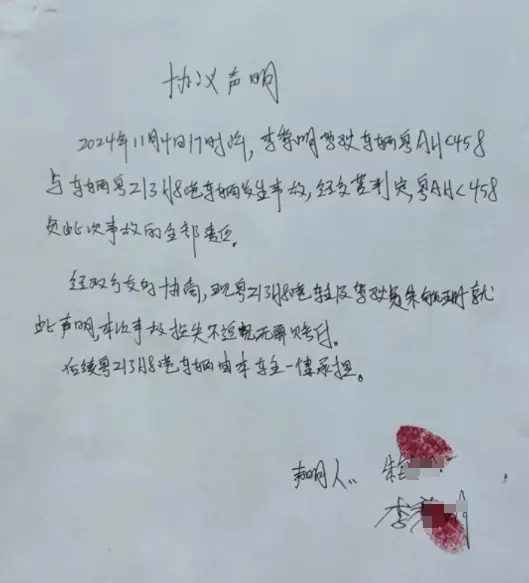 协议声明
2024年11月4日17时许，李黎明驾驶车辆粤AH<458
与车辆粤Z13H8港车辆发生事故，经交警判定，粤AH<458
负此次事故的全部责任。
经双方友好协商，现粤Z13H8港车主及驾驶员朱
此声明，本次事故损失不追究无需赔付。
后续粤Z13H8港车辆由本车主一律承担。
声明人：朱
李